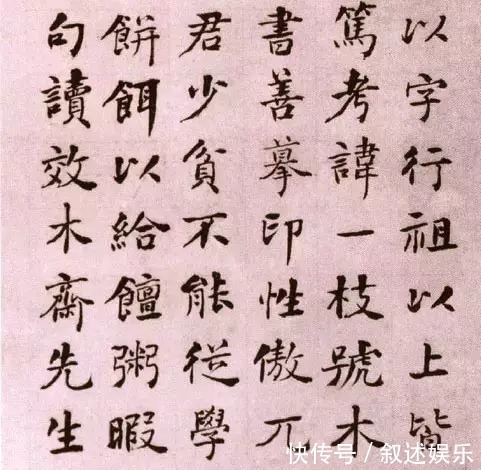 以字行祖以上皆
篤考諱一枝號木
書善摹印性傲兀
君少貧不能從學
餅餌以給饘粥暇
句讀效木齋先生
快传号/叙述娱乐